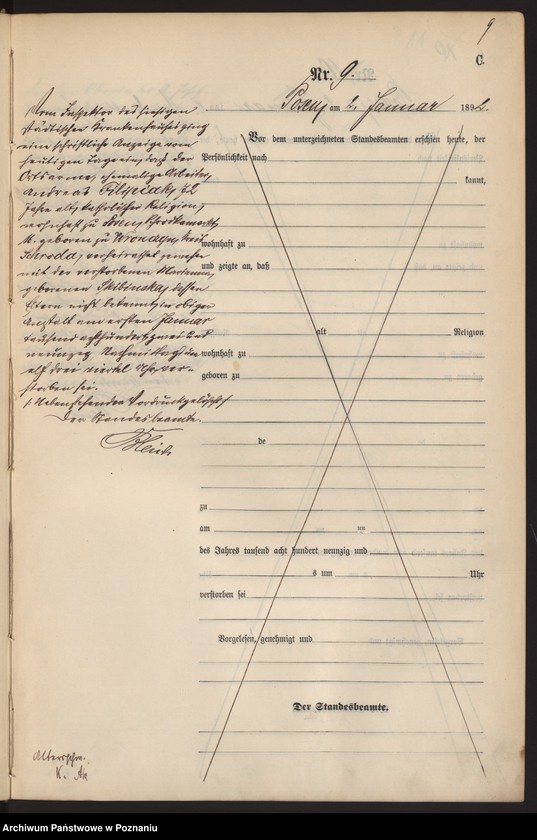 9
C.
Nr. 9.
Posen am 2. Januar 1892
Vom Inspektor des hiesigen
städtischen Krankenhauses ging
eine schriftliche Anzeige vom
heutigen Tage ein, daß der
Ortsarme, ehemalige Arbeiter,
Andreas 72
Jahre alt, katholischer Religion,
wohnhaft zu Posen,
geboren zu Kreis
Schroda, verheirathet gewesen
mit der verstorbenen Marianna,
geborenen Skibinska, dessen
Eltern nicht bekannt, in obiger
Anstalt am ersten Januar
tausend achthundert zwei und
neunzig Nachmittags um
elf drei viertel Uhr ver-
storben sei.
Nebenstehender Vordruck gelöscht
Der Standesbeamte.
Vor dem unterzeichneten Standesbeamten erschien heute, der
Persönlichkeit nach
kannt,
wohnhaft zu
und zeigte an, daß
alt Religion
wohnhaft zu
geboren zu
de
zu
am ten
des Jahres tausend acht hundert neunzig und
s um Uhr
verstorben sei
Vorgelesen, genehmigt und
Der Standesbeamte.
Altersschw.
Archiwum Państwowe w Poznaniu